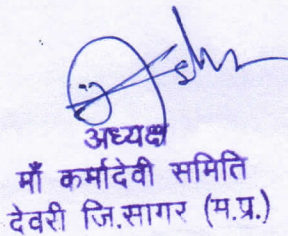 अध्यक्ष
माँ कर्मादेवी समिति
देवरी जि.सागर (म.प्र.)